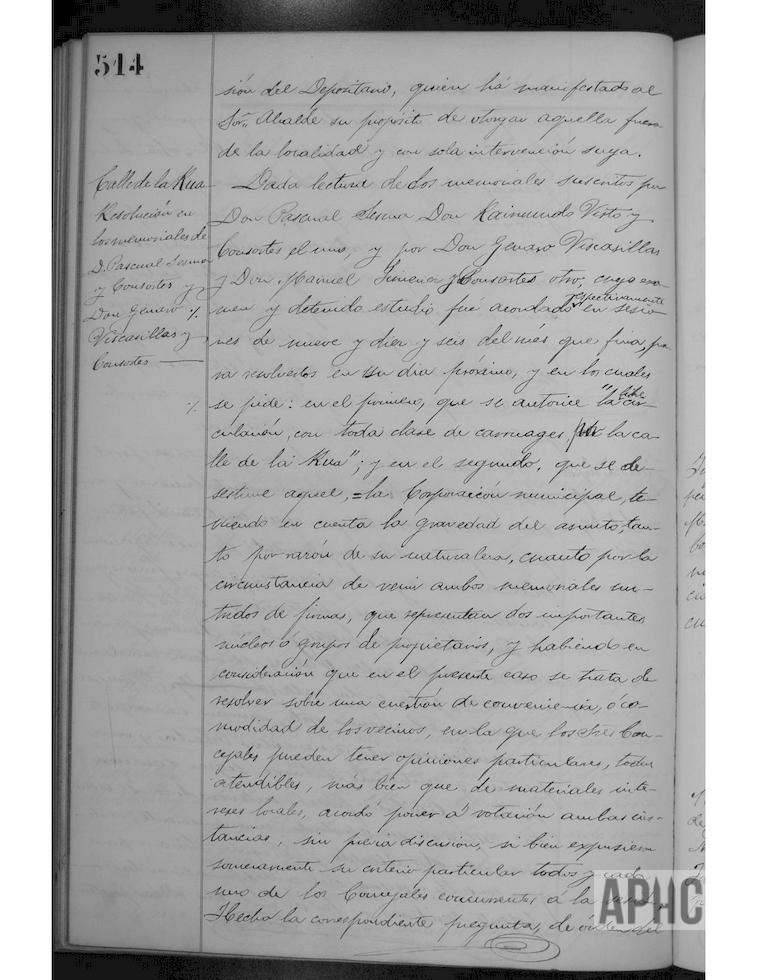 514
sión del Depositario, quien há manifestado al
Sor. Alcalde su proposito de otorgar aquella fuera
de la localidad y con sola intervención suya.
Calle de la Rua
Resolución en
los memoriales de
D. Pascual Sesma
y Consortes y
Don Genaro ./.
Viscasillas y
Consortes
Dada lectura de los memoriales suscritos por
Don Pascual Sesma Don Raimundo Visto y
Consortes el uno, y por Don Genaro Viscasillas
y Don Manuel Jimenez y Consortes otro, cuyo exa-
men y detenido estudio fué acordado respectivamente en sesio-
nes de nueve y diez y seis del més que fina, pa-
ra resolverlos en un dia próximo, y en los cuales
./. se pide: en el primero, que se autorice "la libre cir-
culación, con toda clase de carruages, por la ca-
lle de la Rua"; y en el segundo, que se de-
sestime aquel, = la Corporación municipal, te-
niendo en cuenta la gravedad del asunto, tan-
to por razón de su naturaleza, cuanto por la
circunstancia de venir ambos memoriales nu-
tridos de firmas, que representan dos importantes
núcleos o grupos de propietarios, y habiendo en
consideración que en el presente caso se trata de
resolver sobre una cuestión de conveniencia, ó co-
modidad de los vecinos, en la que los Sres Con-
cejales pueden tener opiniones particulares, todas
atendibles, más bien que de materiales inte-
reses locales, acordó poner á votación ambas ins-
tancias, sin prévia discusión, si bien expusieron
someramente su criterio particular todos y cada
uno de los Concejales concurrentes a la
Hecha la correspondiente pregunta, de órden del
APHC